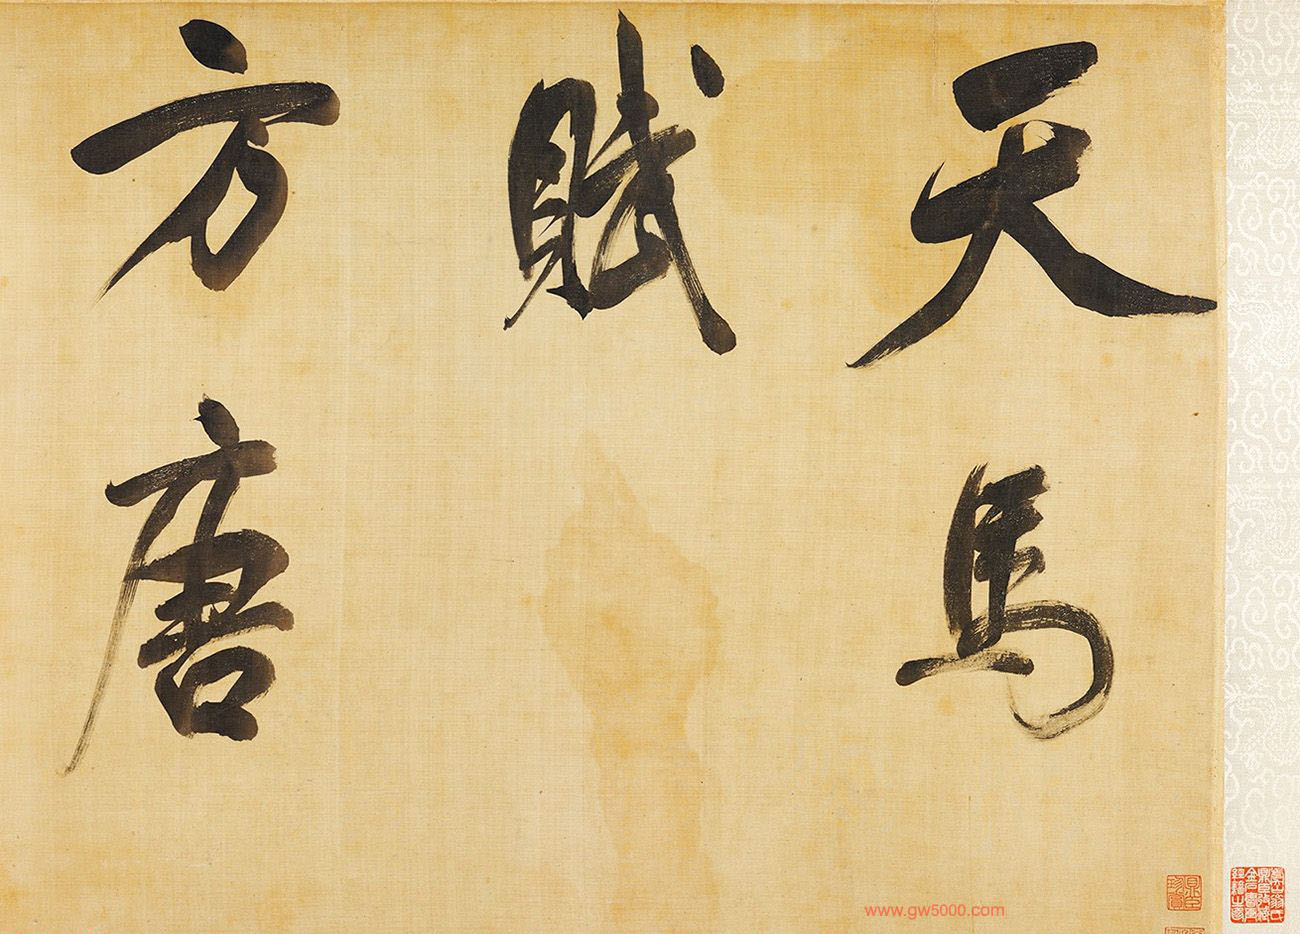 天馬
賦
方唐
www.gw5000.com